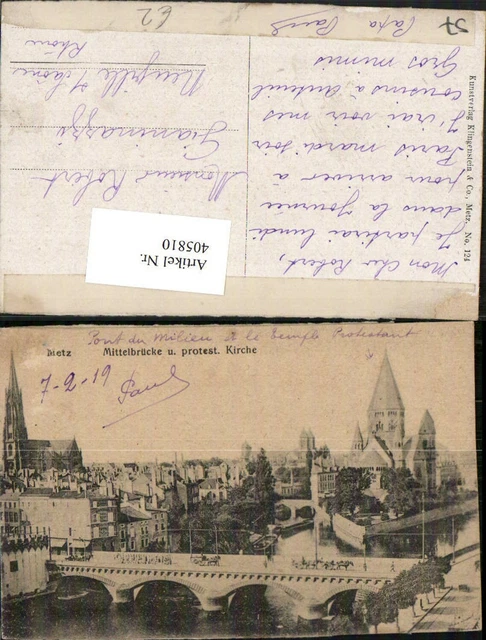 57
Papa
Paul
Mon cher Robert,
Je partirai lundi
dans la journée
pour arriver à
Paris mardi soir
J'irai voir mes
cousins à Auteuil
Gros mimis
Monsieur Robert
Rhône
Kunstverlag Klingenstein & Co., Metz. No. 124
Artikel Nr.
4058810
Pont du Milieu et le Temple Protestant
Metz Mittelbrücke u. protest. Kirche
7-2-19
Paul